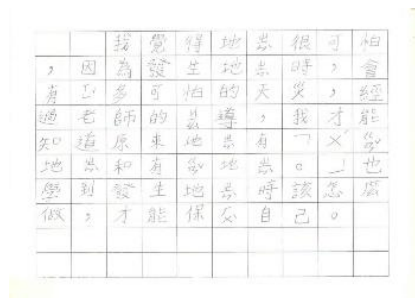 我覺得地震很可怕
，因為發生地震時，會
有多可怕的天災，經
過老師的宣導，我才能
知道原來地震有「ㄨˊ
地震和有地震。」也
學到發生地震時該怎麼
做，才能保自己。